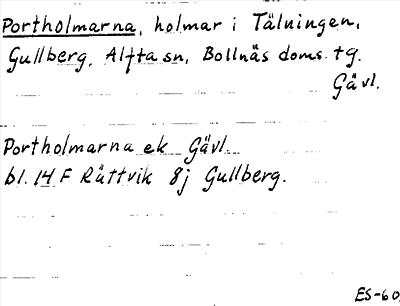 Portholmarna, holmar i Tälningen,
Gullberg, Alfta sn, Bollnäs doms. tg.
Gävl.
Portholmarna ek Gävl.
bl. 14 F Rättvik 8j Gullberg.
ES-60